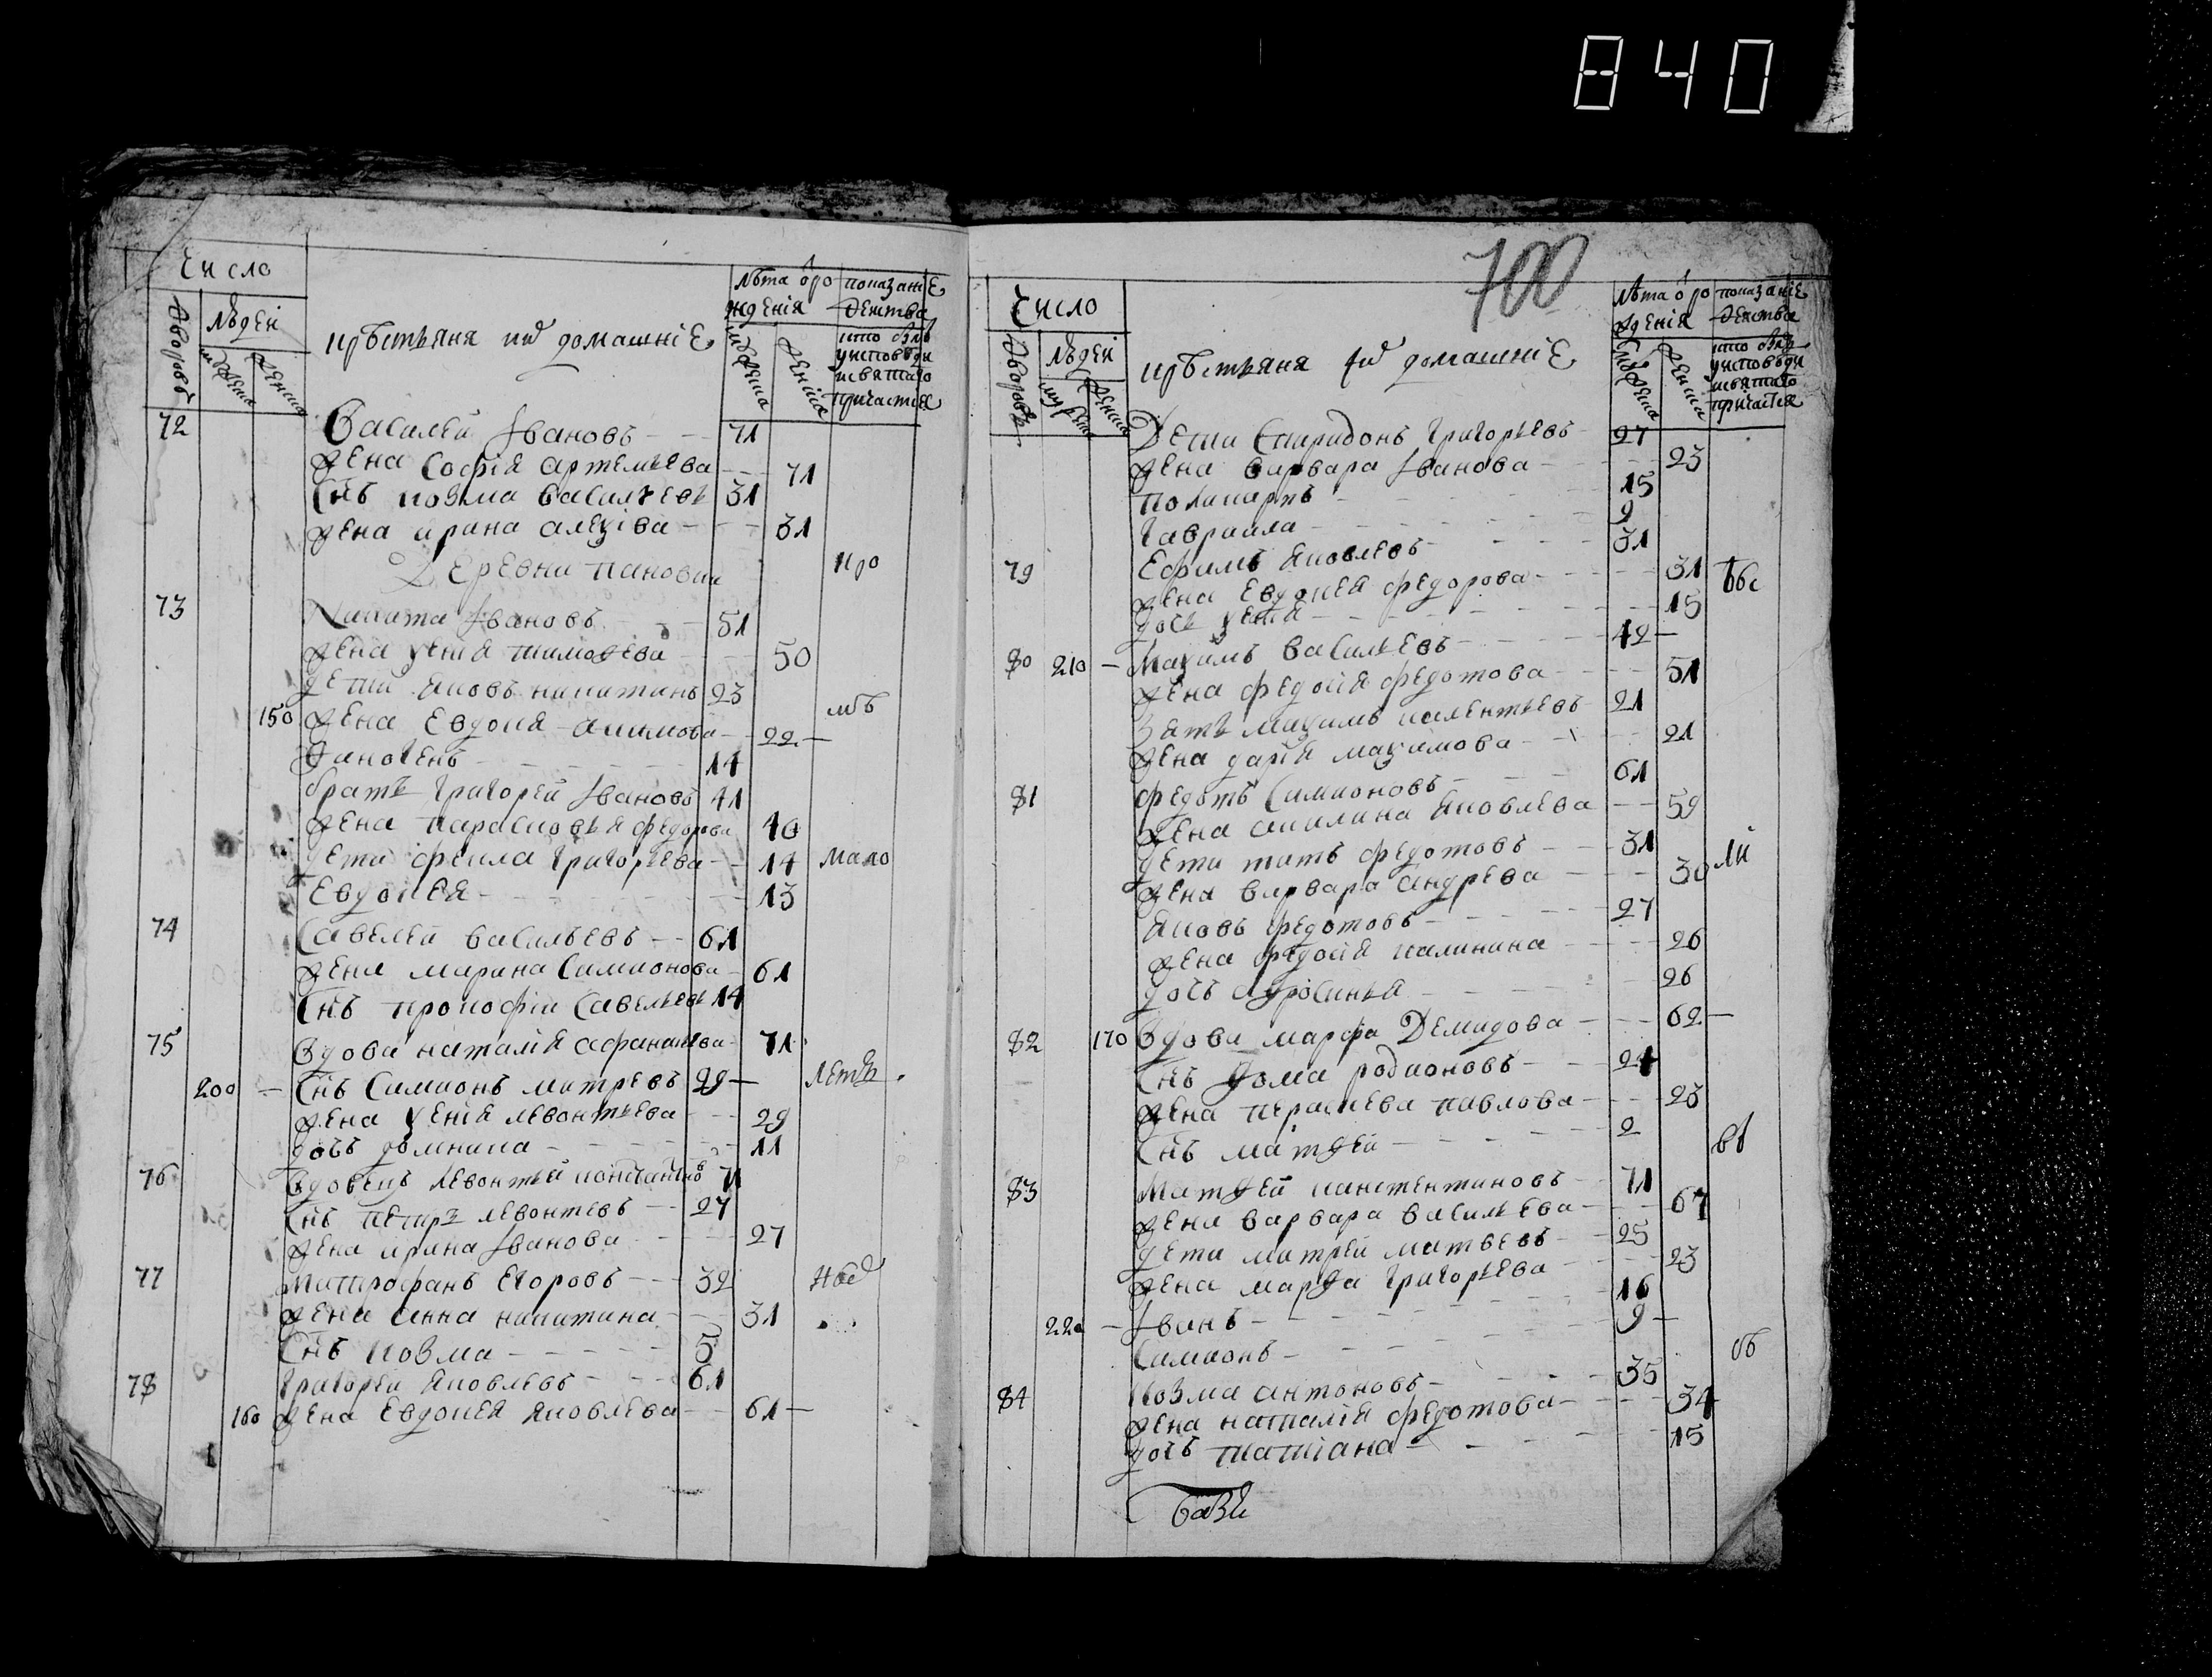 840
Число
Дворовъ
людей
мужеска
женска
крѣстьяня ихъ домашніе
лѣта о ро
жденія
мужеска
женска
показаніе
действа
кто былъ
у исповѣди
и святаго
причастия
72 Василей Ивановъ 71
жена Софія артемьева 71
Снъ козма васильевъ 31
жена ирина алеѯіва 31
Деревни пановки
про
73 Никита Ивановъ 51
жена ѯенія тимоѳева 50
дети яковъ никитинъ 23
150 жена Евдокия акимова 22
14
братъ григорей Ивановъ 41
жена парасковья федорова 40
дети фекла григорьева 14 мало
Евдокея 13
74 Савелей васильевъ 61
жена марина Симионова 61
Снъ прокофіи Савельевъ 14
75 Вдова наталія афанасева 71
200 Снъ Симионъ митревъ 29 летъ
жена ѯенія левонтьева 29
дочь домника 11
76 Вдовецъ левонтьй константиновъ 71
Снъ петръ левонтевъ 27
жена ирина Иванова 27
77 митрофанъ Егоровъ 32
жена анна никитина 31
Снъ козма 5
78 григорей яковлевъ 61
160 жена Евдокея яковлева 61
700
Число
Дворовъ
людей
муже
женска
крѣстьяня их домашніе
лѣта о ро
жденія
мужеска
женска
показаніе
действа
кто былъ
у исповѣди
и святаго
причастия
Дети Спиридонъ григорьевъ 27
жена варвара Иванова 23
поликарпъ 15
гавриила 9
79 Ефимъ яковлевъ 31
жена Евдокея федорова 31
дочь ѯенія 15
80 210 Маѯимъ васильевъ 42
жена федосія федотова 51
Зять маѯимъ калентьевъ 21
жена дарія маѯимова 21
81 федотъ Симионовъ 61
жена акилина яковлева 59
дети титъ федотовъ 31
жена варвара андрева 30 ли
яковъ федотовъ 27
жена федосія калинина 26
дочь афросинья 26
82 170 Вдова марфа Демидова 62
Снъ ѳома родионовъ 24
жена перасчева павлова 23
Снъ матѳей 2
83 Матѳей канстентиновъ 71
жена варвара васильева 67
дети митрей матвевъ 25
жена марѳа григорьева 23
16
220 Иванъ 9
Симионъ
84 козма антоновъ 35
жена наталія федотова 34
дочь татіана 15